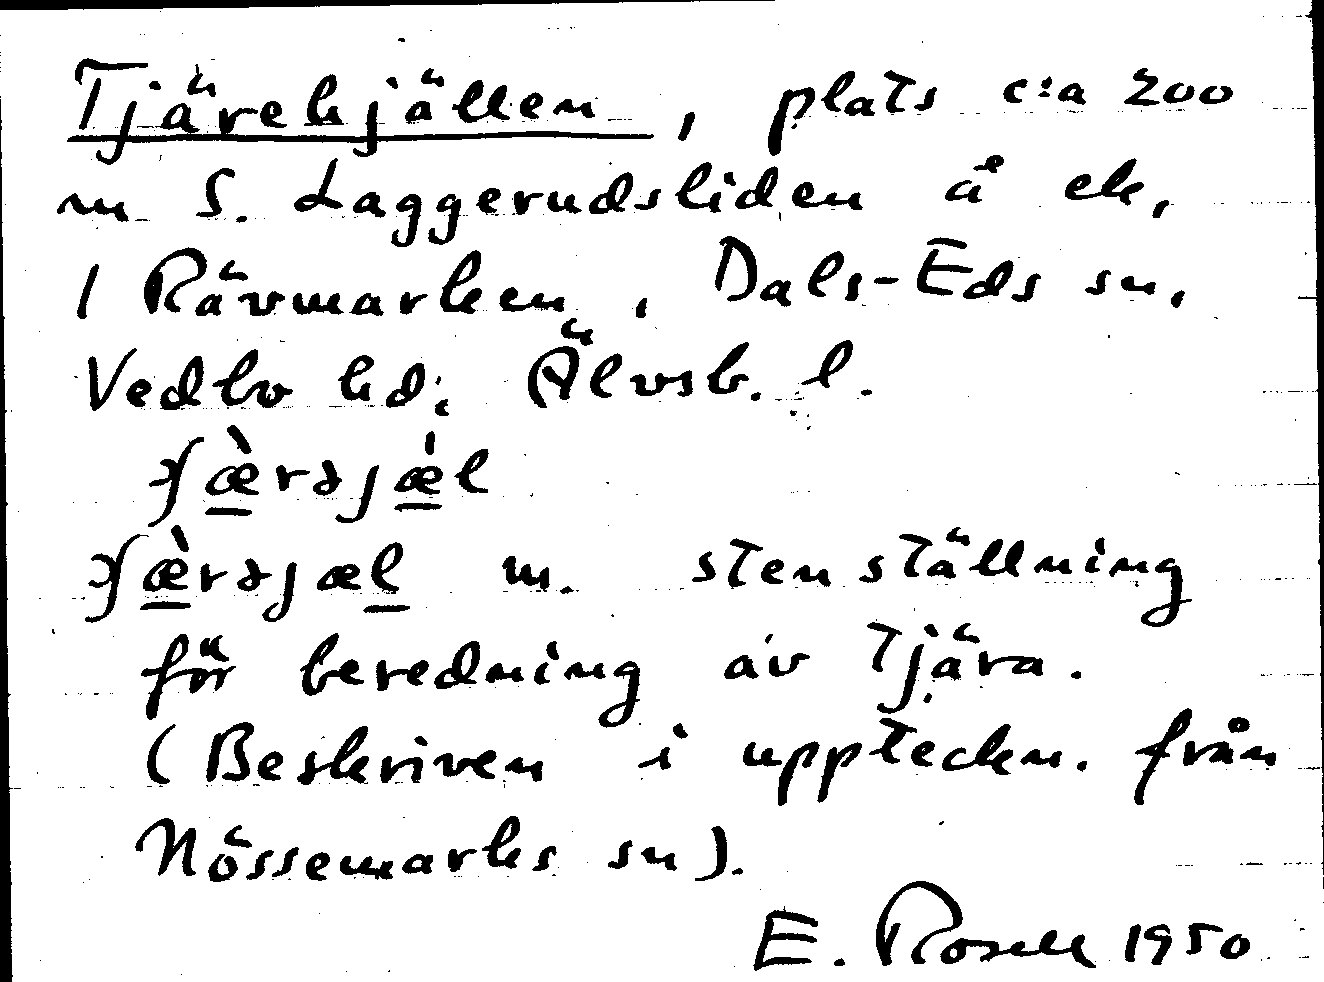 Tjärekjällen, plats c:a 200
m S. Laggerudsliden å ek,
1 Rävmarken, Dals-Eds sn,
Vedbo hd, Älvsb. l.
m. stenställning
för beredning av tjära.
(Beskriven i uppteckn. från
Nössemarks sn).
E. Rosell 1950